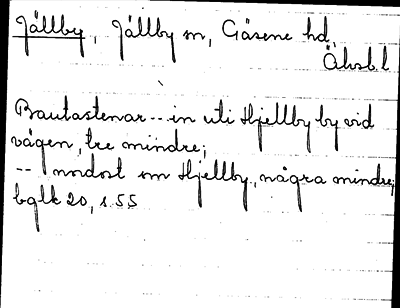 Jällby, Jällby sn, Gäsene hd,
Älvsbl
Bautastenar -- in uti Hjellby by vid
vägen, tre mindre;
-- nordost om Hjellby, några mindre;
bglk 20, s. 55